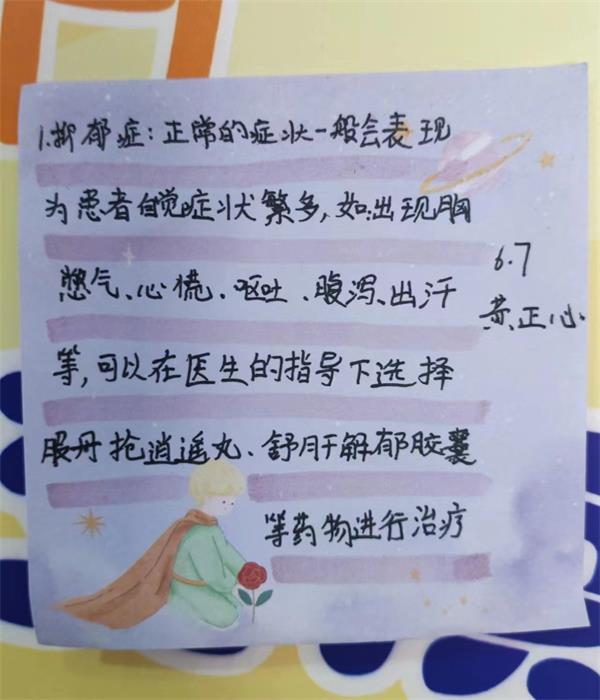 1.抑郁症：正常的症状一般会表现
为患者自觉症状繁多，如：出现胸
憋气、心慌、呕吐、腹泻、出汗
等，可以在医生的指导下选择
服丹抢逍遥丸、舒肝解郁胶囊
等药物进行治疗
6.7
黄正心